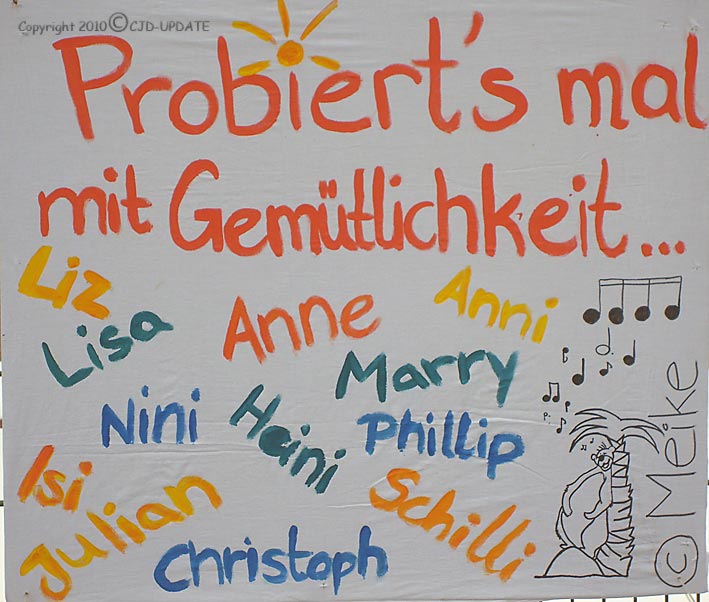 Copyright 2010©CJD-UPDATE
Probiert's mal
mit Gemütlichkeit...
Liz
Lisa
Anne
Anni
Marry
Nini
Heini
Phillip
Isi
Julian
Schilli
Christoph
© Meike